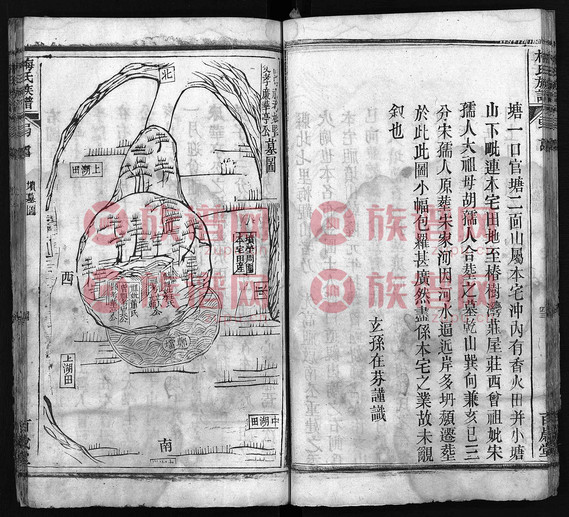 梅氏族譜
塘一口官塘二面山屬本宅沖內有香火田并小塘
山下毗連本宅田地至椿樹灣莊屋莊西曾祖妣宋
孺人大祖母胡孺人合葬之墓乾山巽向兼亥巳三
分宋孺人原葬朱家河因河水逼近岸多坍頹遷葬
於此此圖小幅包羅甚廣然盡係本宅之業故未覼
釵也
玄孫在芬謹識
百歲堂
墓圖
北
上湖田
本宅田產
西
上湖田
中湖田
南
梅氏族譜
墳墓圖
百歲堂
族谱网
族谱网